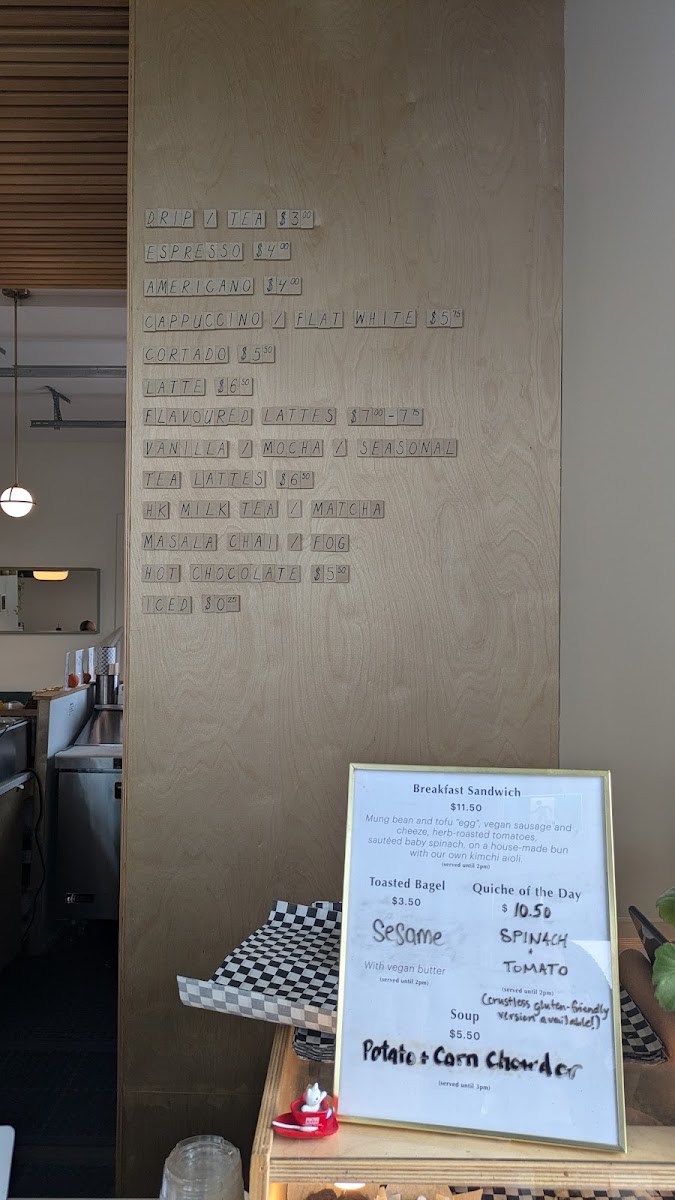 DRIP / TEA $3.00
ESPRESSO $4.00
AMERICANO $4.00
CAPPUCCINO / FLAT WHITE $5.75
CORTADO $5.50
LATTE $6.50
FLAVOURED LATTES $7.00-7.75
VANILLA / MOCHA / SEASONAL
TEA LATTES $6.50
HK MILK TEA / MATCHA
MASALA CHAI / FOG
HOT CHOCOLATE $5.50
ICED $0.25
Breakfast Sandwich
$11.50
Mung bean and tofu "egg", vegan sausage and
cheeze, herb-roasted tomatoes,
sautéed baby spinach, on a house-made bun
with our own kimchi aioli.
(served until 2pm)
Toasted Bagel
$3.50
Sesame
With vegan butter
(served until 2pm)
Quiche of the Day
$ 10.50
SPINACH
+
TOMATO
(served until 2pm)
(crustless gluten-friendly
version available!)
Soup
$5.50
Potato + Corn Chowder
(served until 3pm)